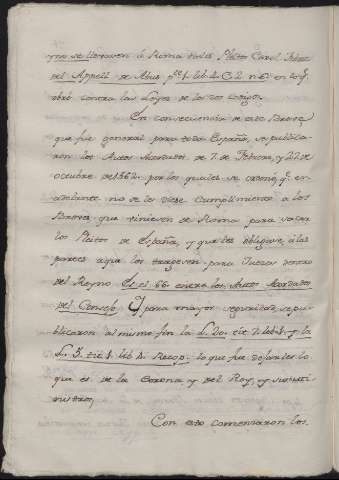 que se llevasen á Roma
del Appell. de Abus. lib. 1. C. 2. n. 6. en lo q.
obró contra las Leyes de los
En consecuencia de este Breve,
que fue general para toda España, se publica-
ron los Autos Acordados de 7. de Febrero, y 27. de
octubre de 1562. por los quales se ordenó, q.e en
adelante no se diese cumplimiento á los
Breves, que viniesen de Roma para sacar
los Pleitos de España, y que les obligase, á las
partes á que los trageren para Juezes dentro
del Reyno. Es el 66. entre los Autos Acordados
del Consejo. Y para mayor seguridad, se pu-
blicaron al mismo fin la L. 20. tit. 7. lib. 1. y la
L. 5. tit. 1. lib. 4. Recop. lo que fue dejarles lo
que es de la Corona, y del Rey, y sus
nistros,
Con esto comenzaron los